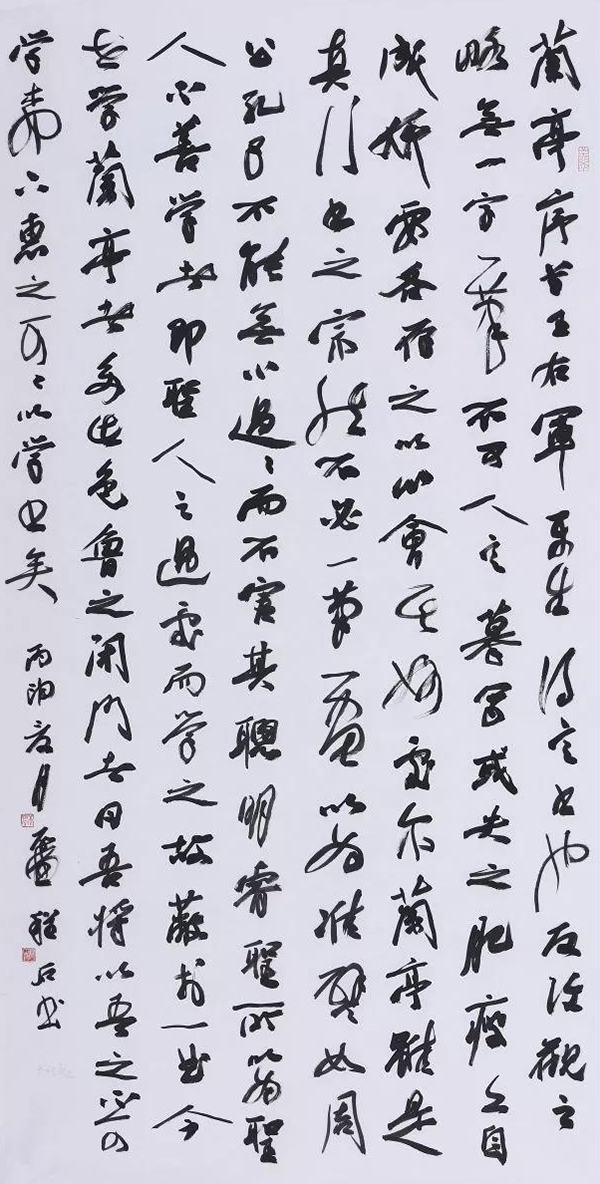 蘭亭序草王右軍平生得意書也反復觀之
略無一字一筆不可人意摹寫或失之肥瘦亦自
成妍要各存之以心會其妙處尔蘭亭雖是
真行書之宗然不必一筆一畫以為准譬如周
公孔子不能無小過々而不害其聰明睿聖所以為聖
人不善学者即聖人之過處而学之故蔽於一曲今
世学蘭亭者多此也魯之闭門者曰吾將以吾之不可
学柳下惠之可々以学書矣 丙申夏月 石書